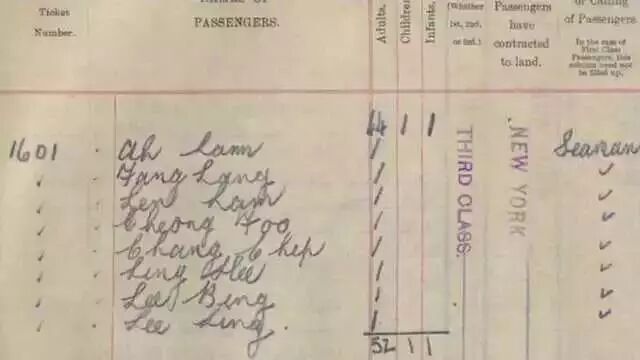 Ticket
Number.
PASSENGERS.
Adults.
Children
Infants.
(Whether
1st, 2nd,
or 3rd.)
Passengers
have
contracted
to land.
or Calling
of Passengers.
In the case of
First Class
Passengers, this
column need not
be filled up.
44 1 1
1601 · Ah Lam / Seaman
✓ · Fang Lang / ✓
✓ · Len Lam / ✓
✓ · Cheong Foo / ✓
✓ · Chang Chip / ✓
✓ · Ling Hee / ✓
✓ · Lee Bing / ✓
✓ · Lee Ling. /
THIRD CLASS.
NEW YORK
52 1 1